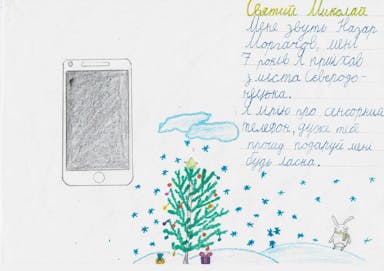 Светий Миколай
Мене звуть Назар
Моргачов, мені
7 років Я приїхав
з міста Сєвєродо-
нецька.
Я мрію про сенсорний
телефон, дуже тебе
прошу подаруй мені
будь ласка.